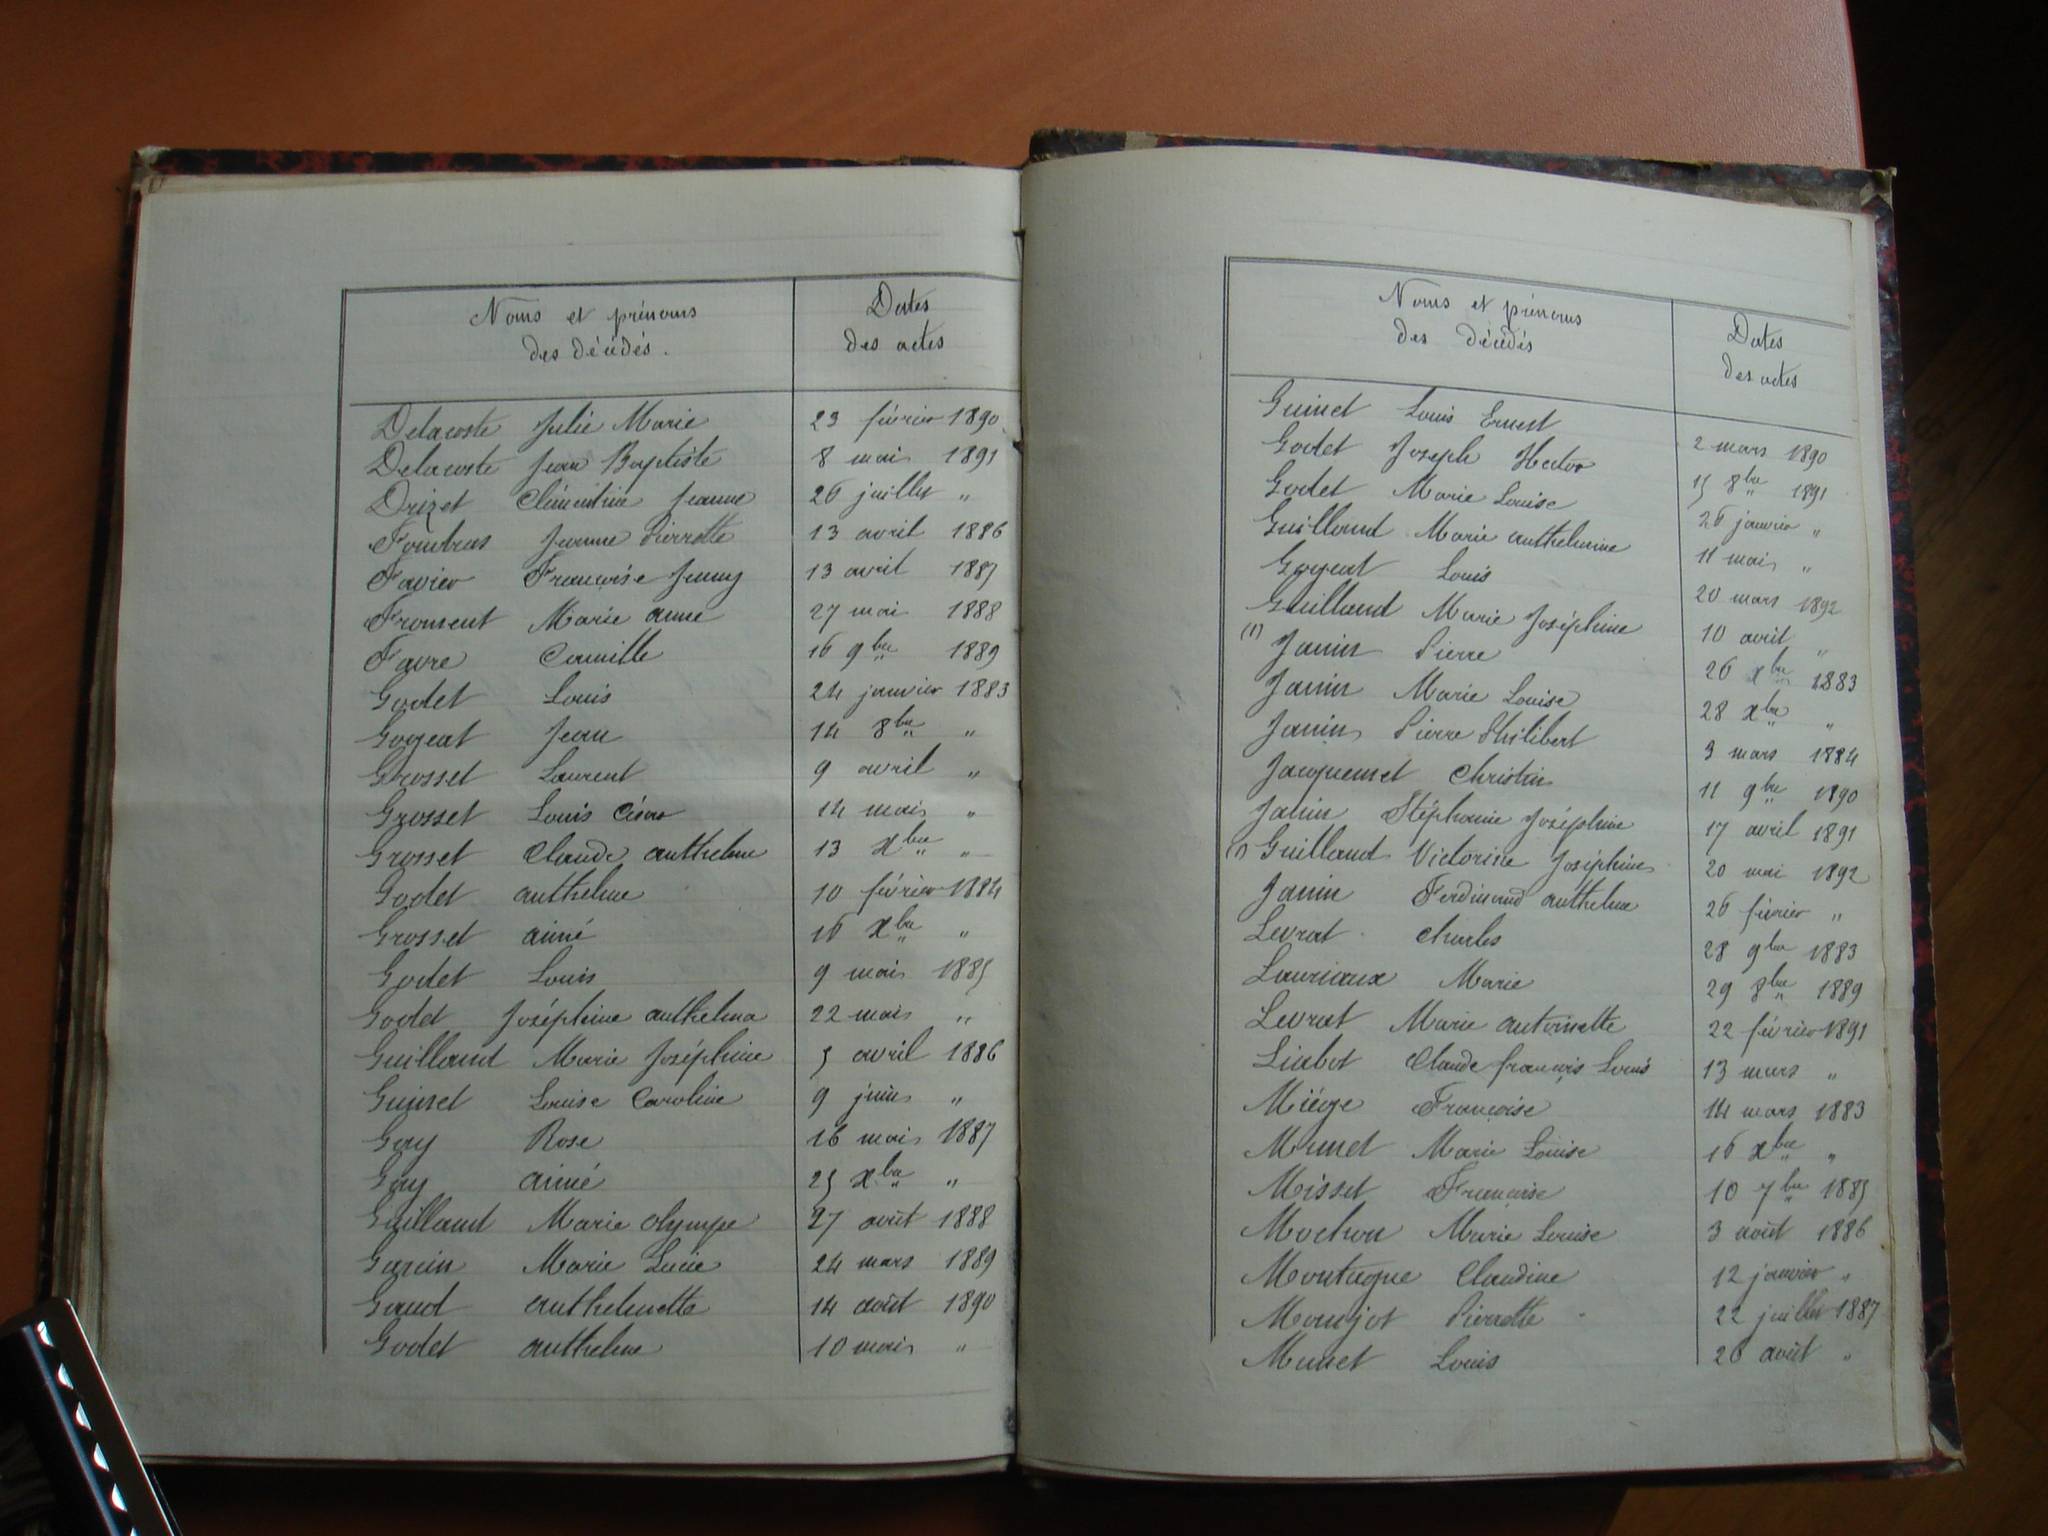 Noms et prénoms
des décédés.
Dates
des actes
Delacoste Julie Marie 23 février 1890
Delacoste Jean Baptiste 8 mai 1891
Drizet Clémentine Jeanne 26 juillet "
Fombras Jeanne Pierrette 13 avril 1886
Favier Françoise Jenny 13 avril 1887
Froment Marie anne 27 mai 1888
Favre Camille 16 9bre 1889
Godet Louis 24 janvier 1883
Gogeat Jean 14 8bre "
Grosset Laurent 9 avril "
Grosset Louis César 14 mai "
Grosset Claude anthelme 13 xbre "
Godet anthelme 10 février 1884
Grosset aimé 16 xbre "
Godet Louis 9 mai 1885
Godet Joséphine anthelma 22 mai "
Guilland Marie Joséphine 5 avril 1886
Guinet Louise Caroline 9 juin "
Gay Rose 16 mai 1887
Gay aimé 25 xbre "
Guilland Marie olympe 27 août 1888
Marie Lucie 24 mars 1889
Gaud anthelmette 14 août 1890
Godet anthelme 10 mai "
Noms et prénoms
des décédés
Dates
des actes
Guinet Louis Ernest 2 mars 1890
Godet Joseph Hector 15 8bre 1891
Godet Marie Louise 26 janvier "
Guilland Marie anthelmine 11 mai "
Gogeat Louis 20 mars 1892
Guilland Marie Joséphine 10 avril "
(1) Janin Pierre 26 xbre 1883
Janin Marie Louise 28 xbre "
Janin Pierre Philibert 3 mars 1884
Jacquemet Christin 11 9bre 1890
Janin Stéphanie Joséphine 17 avril 1891
(1) Guilland Victorine Joséphine 20 mai 1892
Janin Ferdinand anthelme 26 février "
Levrat Charles 28 9bre 1883
Lauriaux Marie 29 8bre 1889
Levrat Marie antoinette 22 février 1891
Liabot Claude françois Louis 13 mars "
Miège Françoise 14 mars 1883
Munet Marie Louise 16 xbre "
Misset Françoise 10 7bre 1885
Mochon Marie Louise 3 août 1886
Montagne Claudine 12 janvier "
Monjot Pierrette 22 juillet 1887
Munet Louis 26 août "